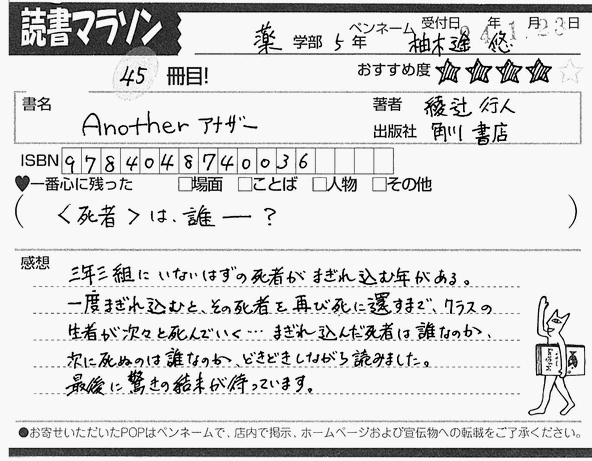 読書マラソン
薬 学部 5 年 ペンネーム 柚木遥 悠 受付日 年 月 日
45 冊目! おすすめ度 ★★★★☆
書名 Another アナザー
著者 綾辻 行人
出版社 角川 書店
ISBN 9784048740036
♥一番心に残った □場面 □ことば □人物 □その他
(〈死者〉は、誰―?)
感想
三年三組にいないはずの死者がまぎれ込む年がある。
一度まぎれ込むと、その死者を再び死に還すまで、クラスの
生者が次々と死んでいく… まぎれ込んだ死者は誰なのか、
次に死ぬのは誰なのか、どきどきしながら読みました。
最後に驚きの結末が待っています。
●お寄せいただいたPOPはペンネームで、店内で掲示、ホームページおよび宣伝物への転載をご了承ください。